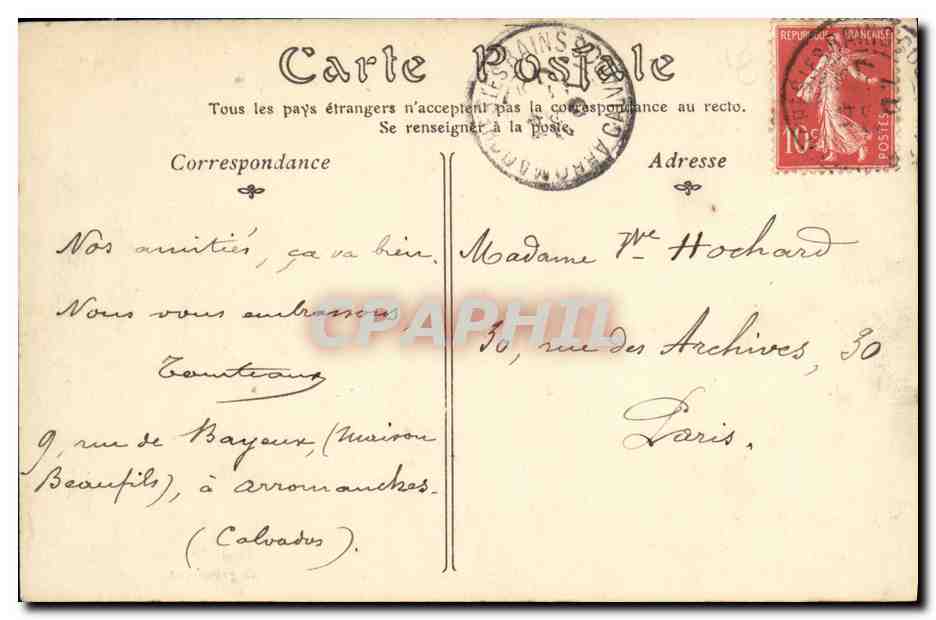 Carte Postale
Tous les pays étrangers n'acceptent pas la correspondance au recto.
Se renseigner à la poste.
Correspondance
Adresse
REPUBLIQUE FRANÇAISE
10c
POSTES
Nos amitiés, ça va bien.
Nous vous embrassons
9, rue de Bayeux, (Maison
Beaufils), à Arromanches.
(Calvados).
Madame Vve Hochard
30, rue des Archives, 30
Paris.
CPAPHIL